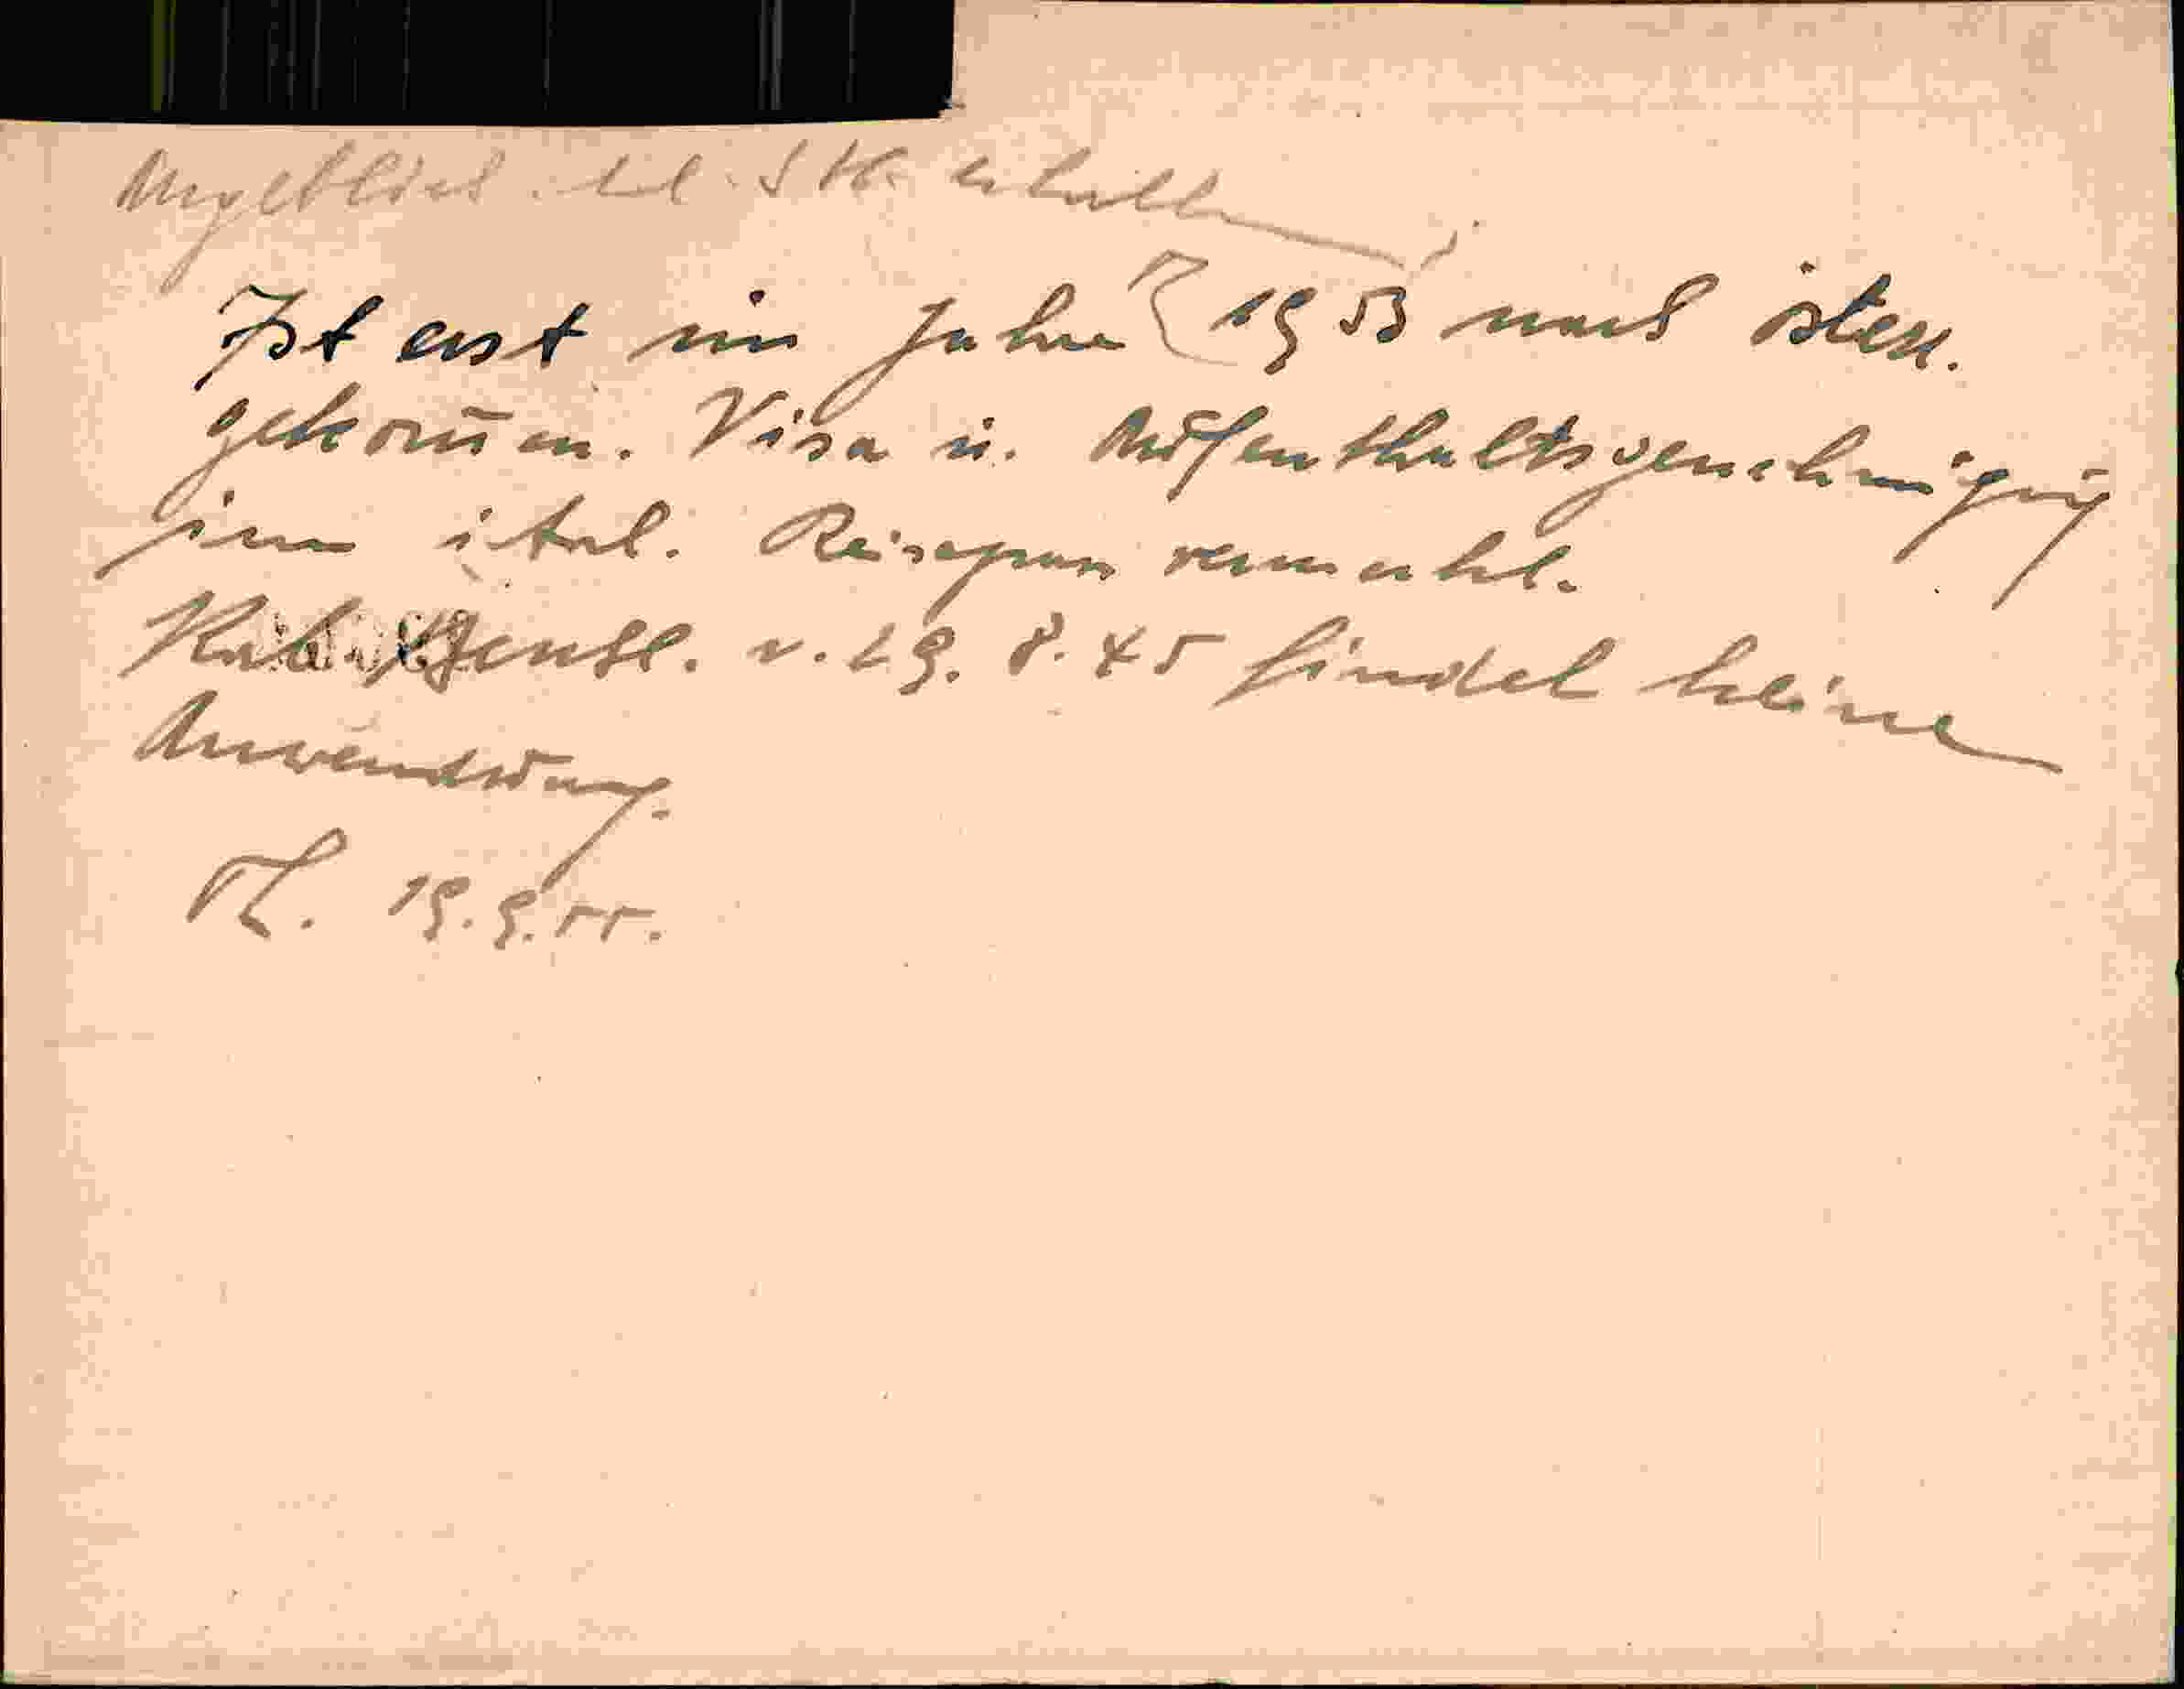 Angeblich öst. Stb. erhalten
Ist erst im Jahre 1953 nach österr.
gekommen. Visa u. Aufenthaltsgenehmigung
im ital. Reisepass vermerkt.
Kab. v. 29. 8. 45 findet keine
Anwendung.
19.9.55.